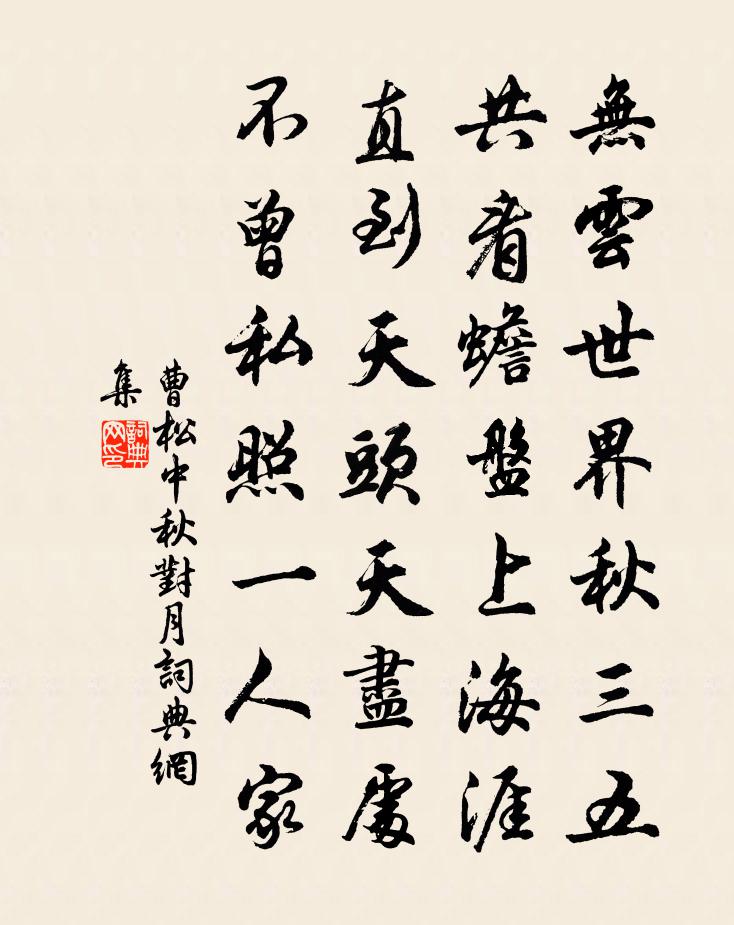 無雲世界秋三五
共看蟾盤上海涯
直到天頭天盡處
不曾私照一人家
曹松中秋對月詞典網
集
詞典网印